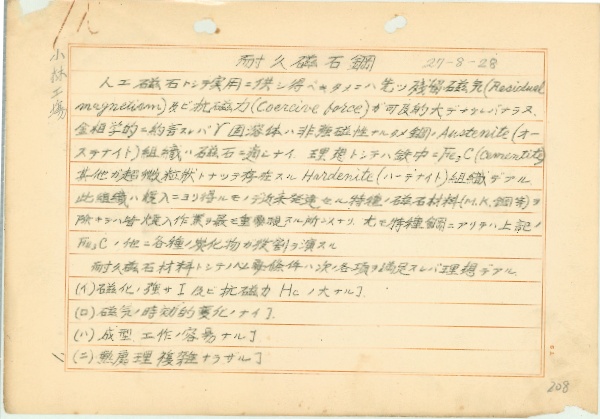 小林工場
耐久磁石鋼 27-8-28
人工磁石トシテ実用ニ供シ得ベキタメニハ先ヅ残留磁気(Residual
magnetism)及ビ抗磁力(Coercive force)ガ可及的大デナケレバナラヌ
金相学的ニ約言スレバγ固溶体ハ非強磁性ナルタメ鋼ノAustenite(オー
ステナイト)組織ハ磁石ニ適シナイ 理想トシテハ鉄中ニFe₃C(Cementite)
其他ガ超微粒状トナッテ存在スルHardenite(ハーデナイト)組織デアル
此組織ハ焼入ニヨリ得ルモノデ近来発達セル特種ノ磁石材料(M.K.鋼等)ヲ
除キテハ皆焼入作業ヲ最モ重要視スル所
特種鋼ニアリテハ上記ノ
Fe₃Cノ他ニ各種ノ炭化物ガ役割ヲ演スル
耐久磁石材料トシテノ必要条件ハ次ノ各項ヲ満足スレバ理想デアル
(イ)磁化ノ強サI及ビ抗磁力Hcノ大ナル]
(ロ)磁気ノ時効的変化ノナイ]
(ハ)成型工作ノ容易ナル]
(ニ)熱処理複雑ナラザル]
208